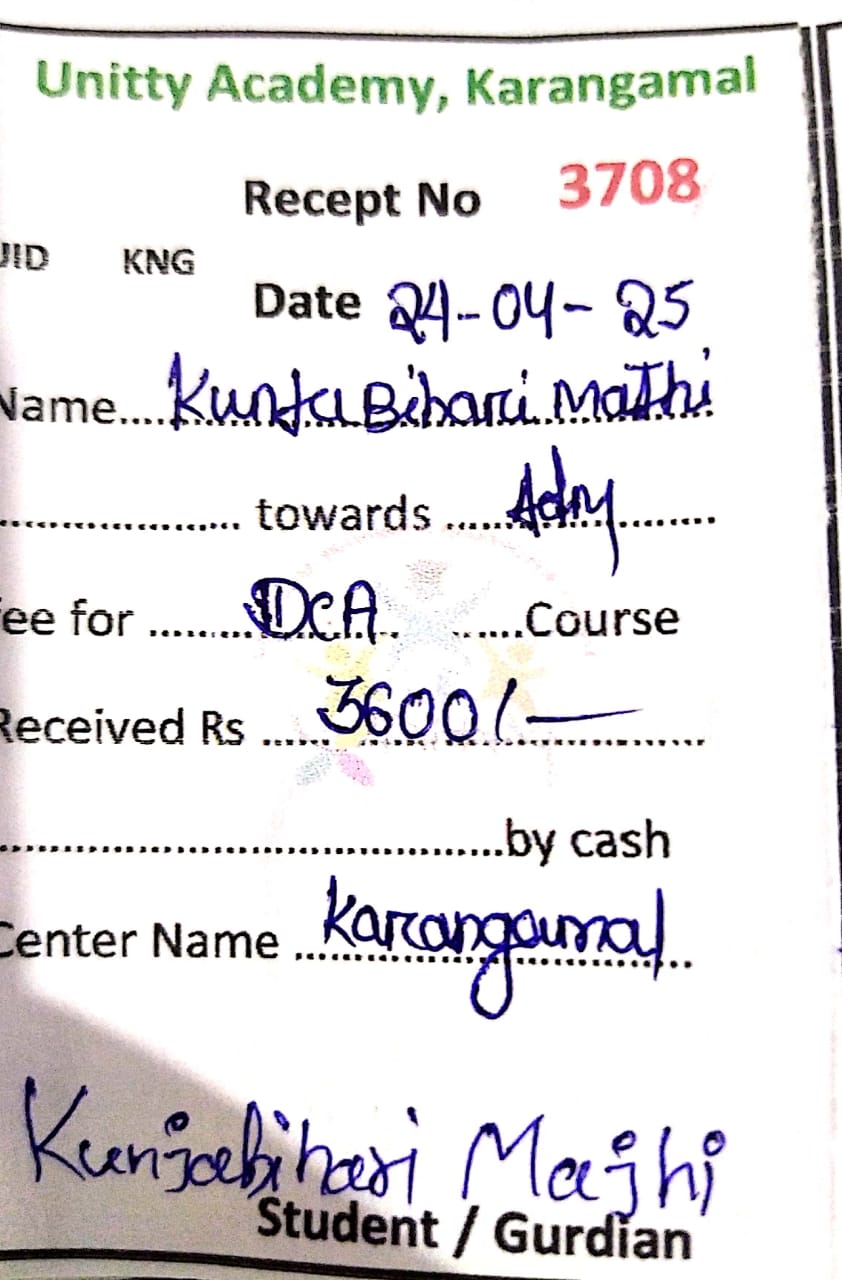 Unitty Academy, Karangamal
Recept No 3708
UID KNG
Date 24-04-25
Name....KunjaBihari Majhi
.................... towards ......Adm..........
ee for .........DCA. ......Course
Received Rs ......3600/-
........................................by cash
Center Name ....Karangamal..
Kunjabihari Majhi
Student / Gurdian